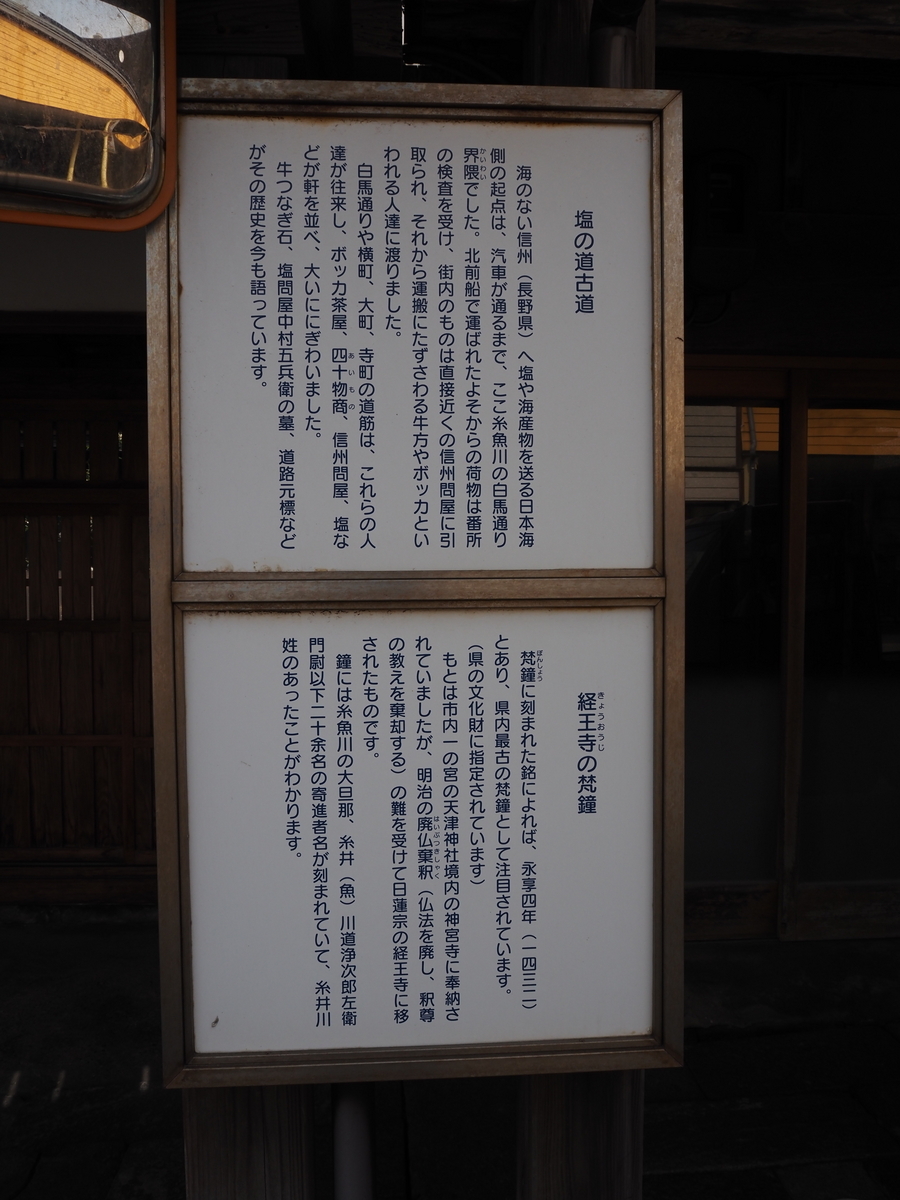 塩の道古道
海のない信州（長野県）へ塩や海産物を送る日本海
側の起点は、汽車が通るまで、ここ糸魚川の白馬通り
界隈でした。北前船で運ばれたよそからの荷物は番所
かいわい
の検査を受け、街内のものは直接近くの信州問屋に引
取られ、それから運搬にたずさわる牛方やボッカとい
われる人達に渡りました。
白馬通りや横町、大町、寺町の道筋は、これらの人
達が往来し、ボッカ茶屋、四十物商、信州問屋、塩な
あいもの
どが軒を並べ、大いににぎわいました。
牛つなぎ石、塩問屋中村五兵衛の墓、道路元標など
がその歴史を今も語っています。
経王寺の梵鐘
きょうおうじ
梵鐘に刻まれた銘によれば、永享四年（一四三二）
ぼんしょう
とあり、県内最古の梵鐘として注目されています。
（県の文化財に指定されています）
もとは市内一の宮の天津神社境内の神宮寺に奉納さ
れていましたが、明治の廃仏棄釈（仏法を廃し、釈尊
はいぶつきしゃく
の教えを棄却する）の難を受けて日蓮宗の経王寺に移
されたものです。
鐘には糸魚川の大旦那、糸井（魚）川道浄次郎左衛
門尉以下二十余名の寄進者名が刻まれていて、糸井川
姓のあったことがわかります。